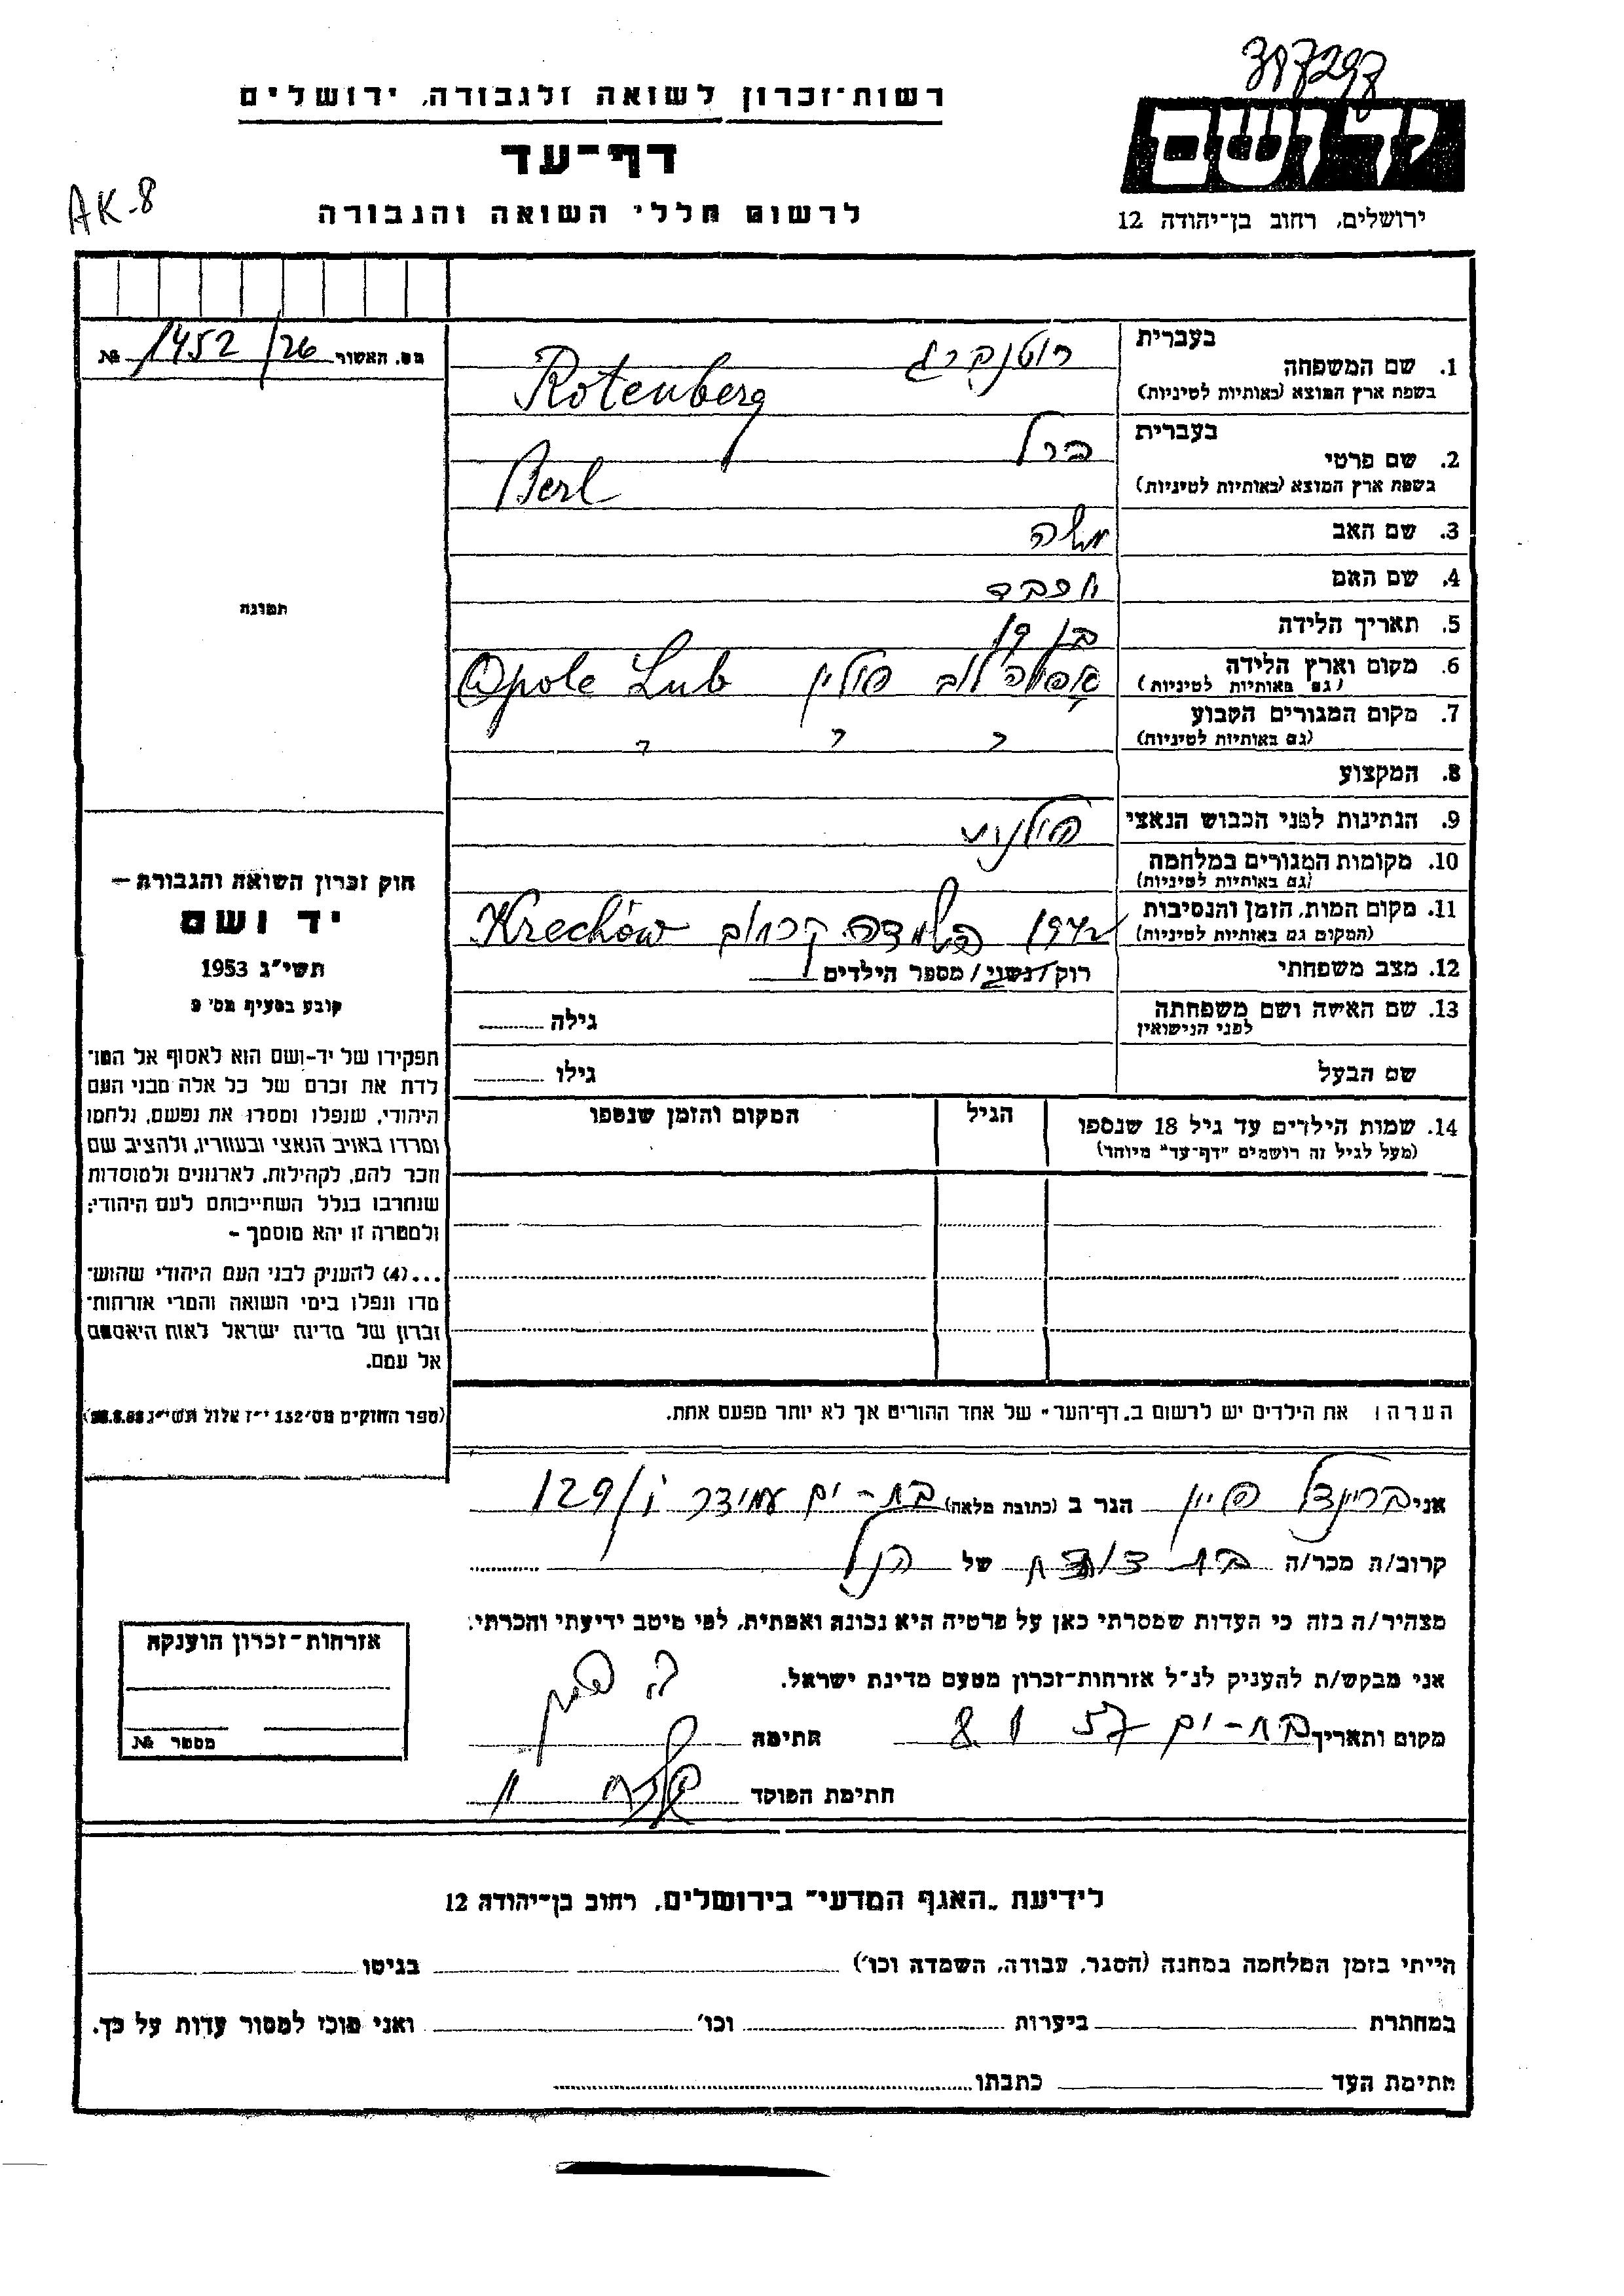 397297
רשות־זכרון לשואה ולגבורה, ירושלים
יד ושם
דף־עד
AK-8
לרשום חללי השואה והגבורה
ירושלים, רחוב בן־יהודה 12
מס. האשור 1452/26 №
בעברית
1. שם המשפחה רוטנברג
בשפת ארץ המוצא (באותיות לטיניות) Rotenberg
בעברית
2. שם פרטי ברל
בשפת ארץ המוצא (באותיות לטיניות) Berl
3. שם האב משה
4. שם האם יוכבד
5. תאריך הלידה בן 19
6. מקום וארץ הלידה אפולה לוב פולין Opole Lub
(גם באותיות לטיניות)
7. מקום המגורים הקבוע " " "
(גם באותיות לטיניות)
8. המקצוע
9. הנתינות לפני הכבוש הנאצי פולנית
10. מקומות המגורים במלחמה
(גם באותיות לטיניות)
11. מקום המות, הזמן והנסיבות 1942 קרחוב Krechów
(המקום גם באותיות לטיניות)
12. מצב משפחתי רווק/נשוי/מספר הילדים
13. שם האשה ושם משפחתה גילה
לפני הנישואין
שם הבעל גילו
14. שמות הילדים עד גיל 18 שנספו הגיל המקום והזמן שנספו
(מעל לגיל זה רושמים "דף־עד" מיוחד)
תמונה
חוק זכרון השואה והגבורה –
יד ושם
תשי"ג 1953
קובע בסעיף מס' 9
תפקידו של יד-ושם הוא לאסוף אל המו־
לדת את זכרם של כל אלה מבני העם
היהודי, שנפלו ומסרו את נפשם, נלחמו
ומרדו באויב הנאצי ובעוזריו, ולהציב שם
וזכר להם, לקהילות, לארגונים ולמוסדות
שנחרבו בגלל השתייכותם לעם היהודי;
ולמטרה זו יהא מוסמך –
...(4) להעניק לבני העם היהודי שהוש־
מדו ונפלו בימי השואה והמרי אזרחות־
זכרון של מדינת ישראל לאות היאספם
אל עמם.
(ספר החוקים מס' 132 י"ז אלול תשי"ג 28.8.53)
הערה: את הילדים יש לרשום ב„דף־העד" של אחד ההורים אך לא יותר מפעם אחת.
אני בריינדל פיין הגר ב (כתובת מלאה) בת-ים עמידר 129/
קרוב/ה מכר/ה בת של הנ"ל
מצהיר/ה בזה כי העדות שמסרתי כאן על פרטיה היא נכונה ואמתית, לפי מיטב ידיעתי והכרתי.
אני מבקש/ת להעניק לנ"ל אזרחות־זכרון מטעם מדינת ישראל.
מקום ותאריך בת-ים 8 1 57 חתימה
חתימת הפוקד
אזרחות־זכרון הוענקה
מספר №
לידיעת „האגף המדעי" בירושלים, רחוב בן־יהודה 12
הייתי בזמן המלחמה במחנה (הסגר, עבודה, השמדה וכו') בגיטו
במחתרת ביערות וכו' ואני מוכן למסור עדות על כך.
חתימת העד כתבתו